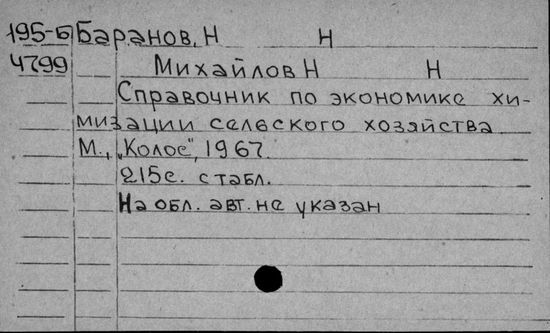 195-Б Баранов, Н Н
4799 Михайлов Н Н
Справочник по экономике хи-
мизации сельского хозяйства
М., „Колос", 1967.
215с. с табл.
На обл. авт. не указан